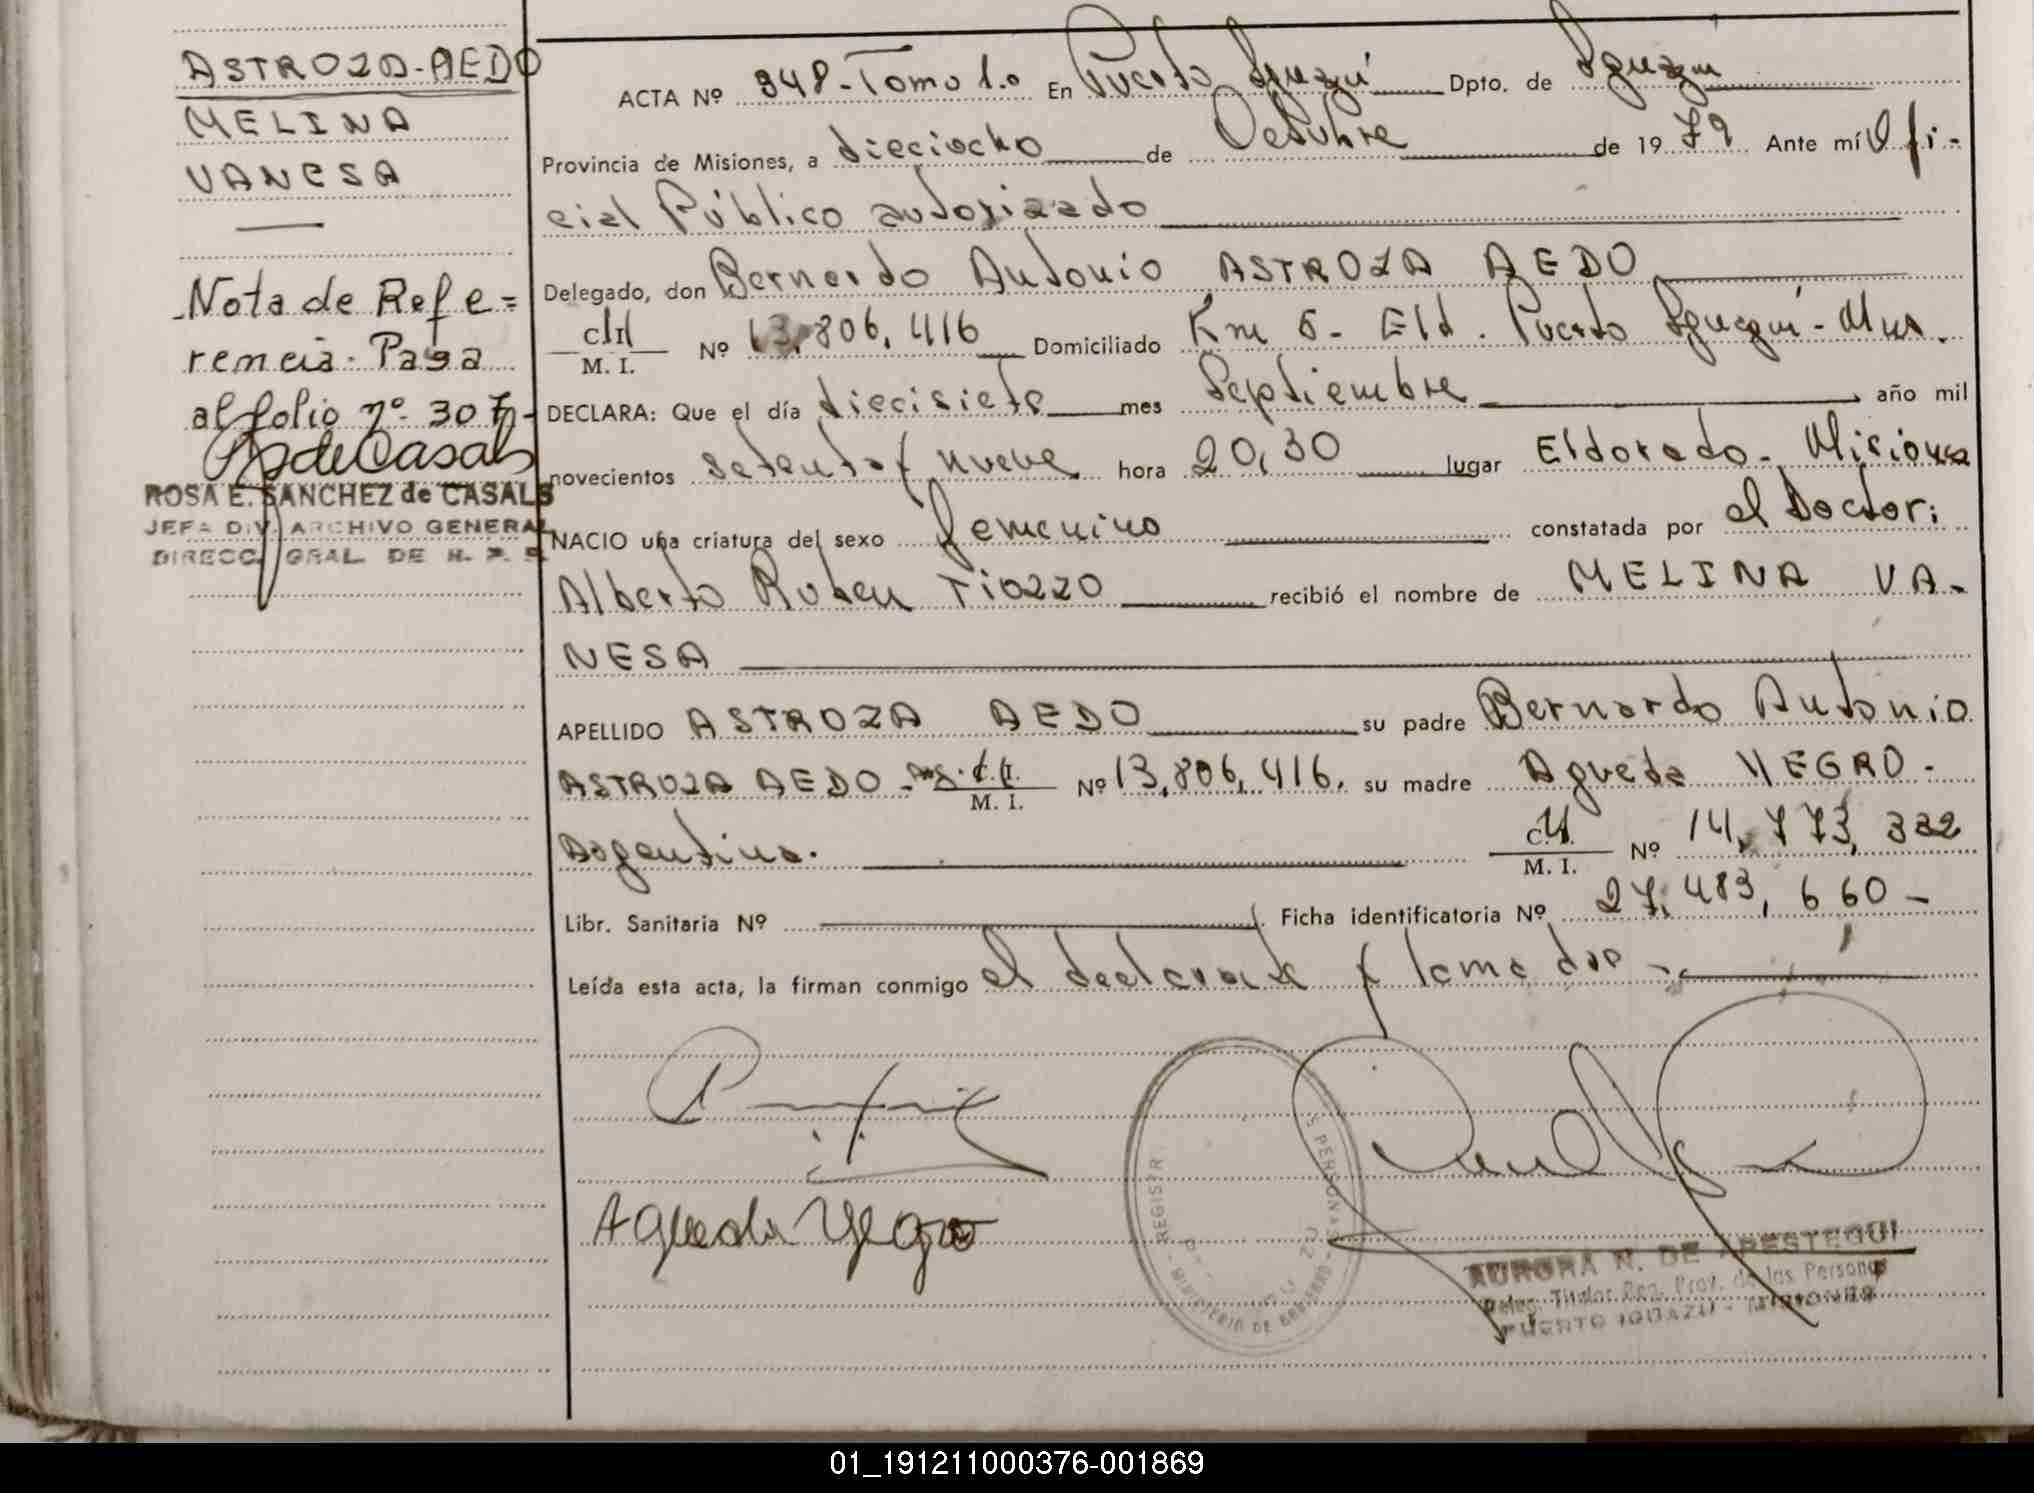 ASTROZA-AEDO
MELINA
VANESA
Nota de Refe=
rencia. Pasa
al folio nº 307-
ROSA E. SANCHEZ de CASALS
JEFA DIV. ARCHIVO GENERAL
DIRECC. GRAL. DE R. P. P.
ACTA Nº 348-Tomo 1.o En Puerto Iguazú Dpto. de Iguazú
Provincia de Misiones, a dieciocho de Octubre de 1979 Ante mí Ofi-
cial Público autorizado
Delegado, don Bernardo Antonio ASTROZA AEDO
C.I. M. I. Nº 13.806.416 Domiciliado Km 5- Eld. Puerto Iguazú-Mnes.
DECLARA: Que el día diecisiete mes Septiembre año mil
novecientos setenta y nueve hora 20,30 lugar Eldorado- Misiones
NACIO una criatura del sexo femenino constatada por el Doctor:
Alberto Ruben Tiozzo recibió el nombre de MELINA VA-
NESA
APELLIDO ASTROZA AEDO su padre Bernardo Antonio
ASTROZA AEDO- C.I. M. I. Nº 13.806.416. su madre Agueda YEGRO-
Argentina. C.I. M. I. Nº 14.773.332
Libr. Sanitaria Nº Ficha identificatoria Nº 27.483.660-
Leída esta acta, la firman conmigo el declarante y la madre-
Agueda Yegro
REGISTR S PERSONAS
MINISTERIO DE GOBIERNO
AURORA N. DE APESTEGUI
Deleg. Titular Reg. Prov. de las Personas
PUERTO IGUAZU - MISIONES
01_191211000376-001869